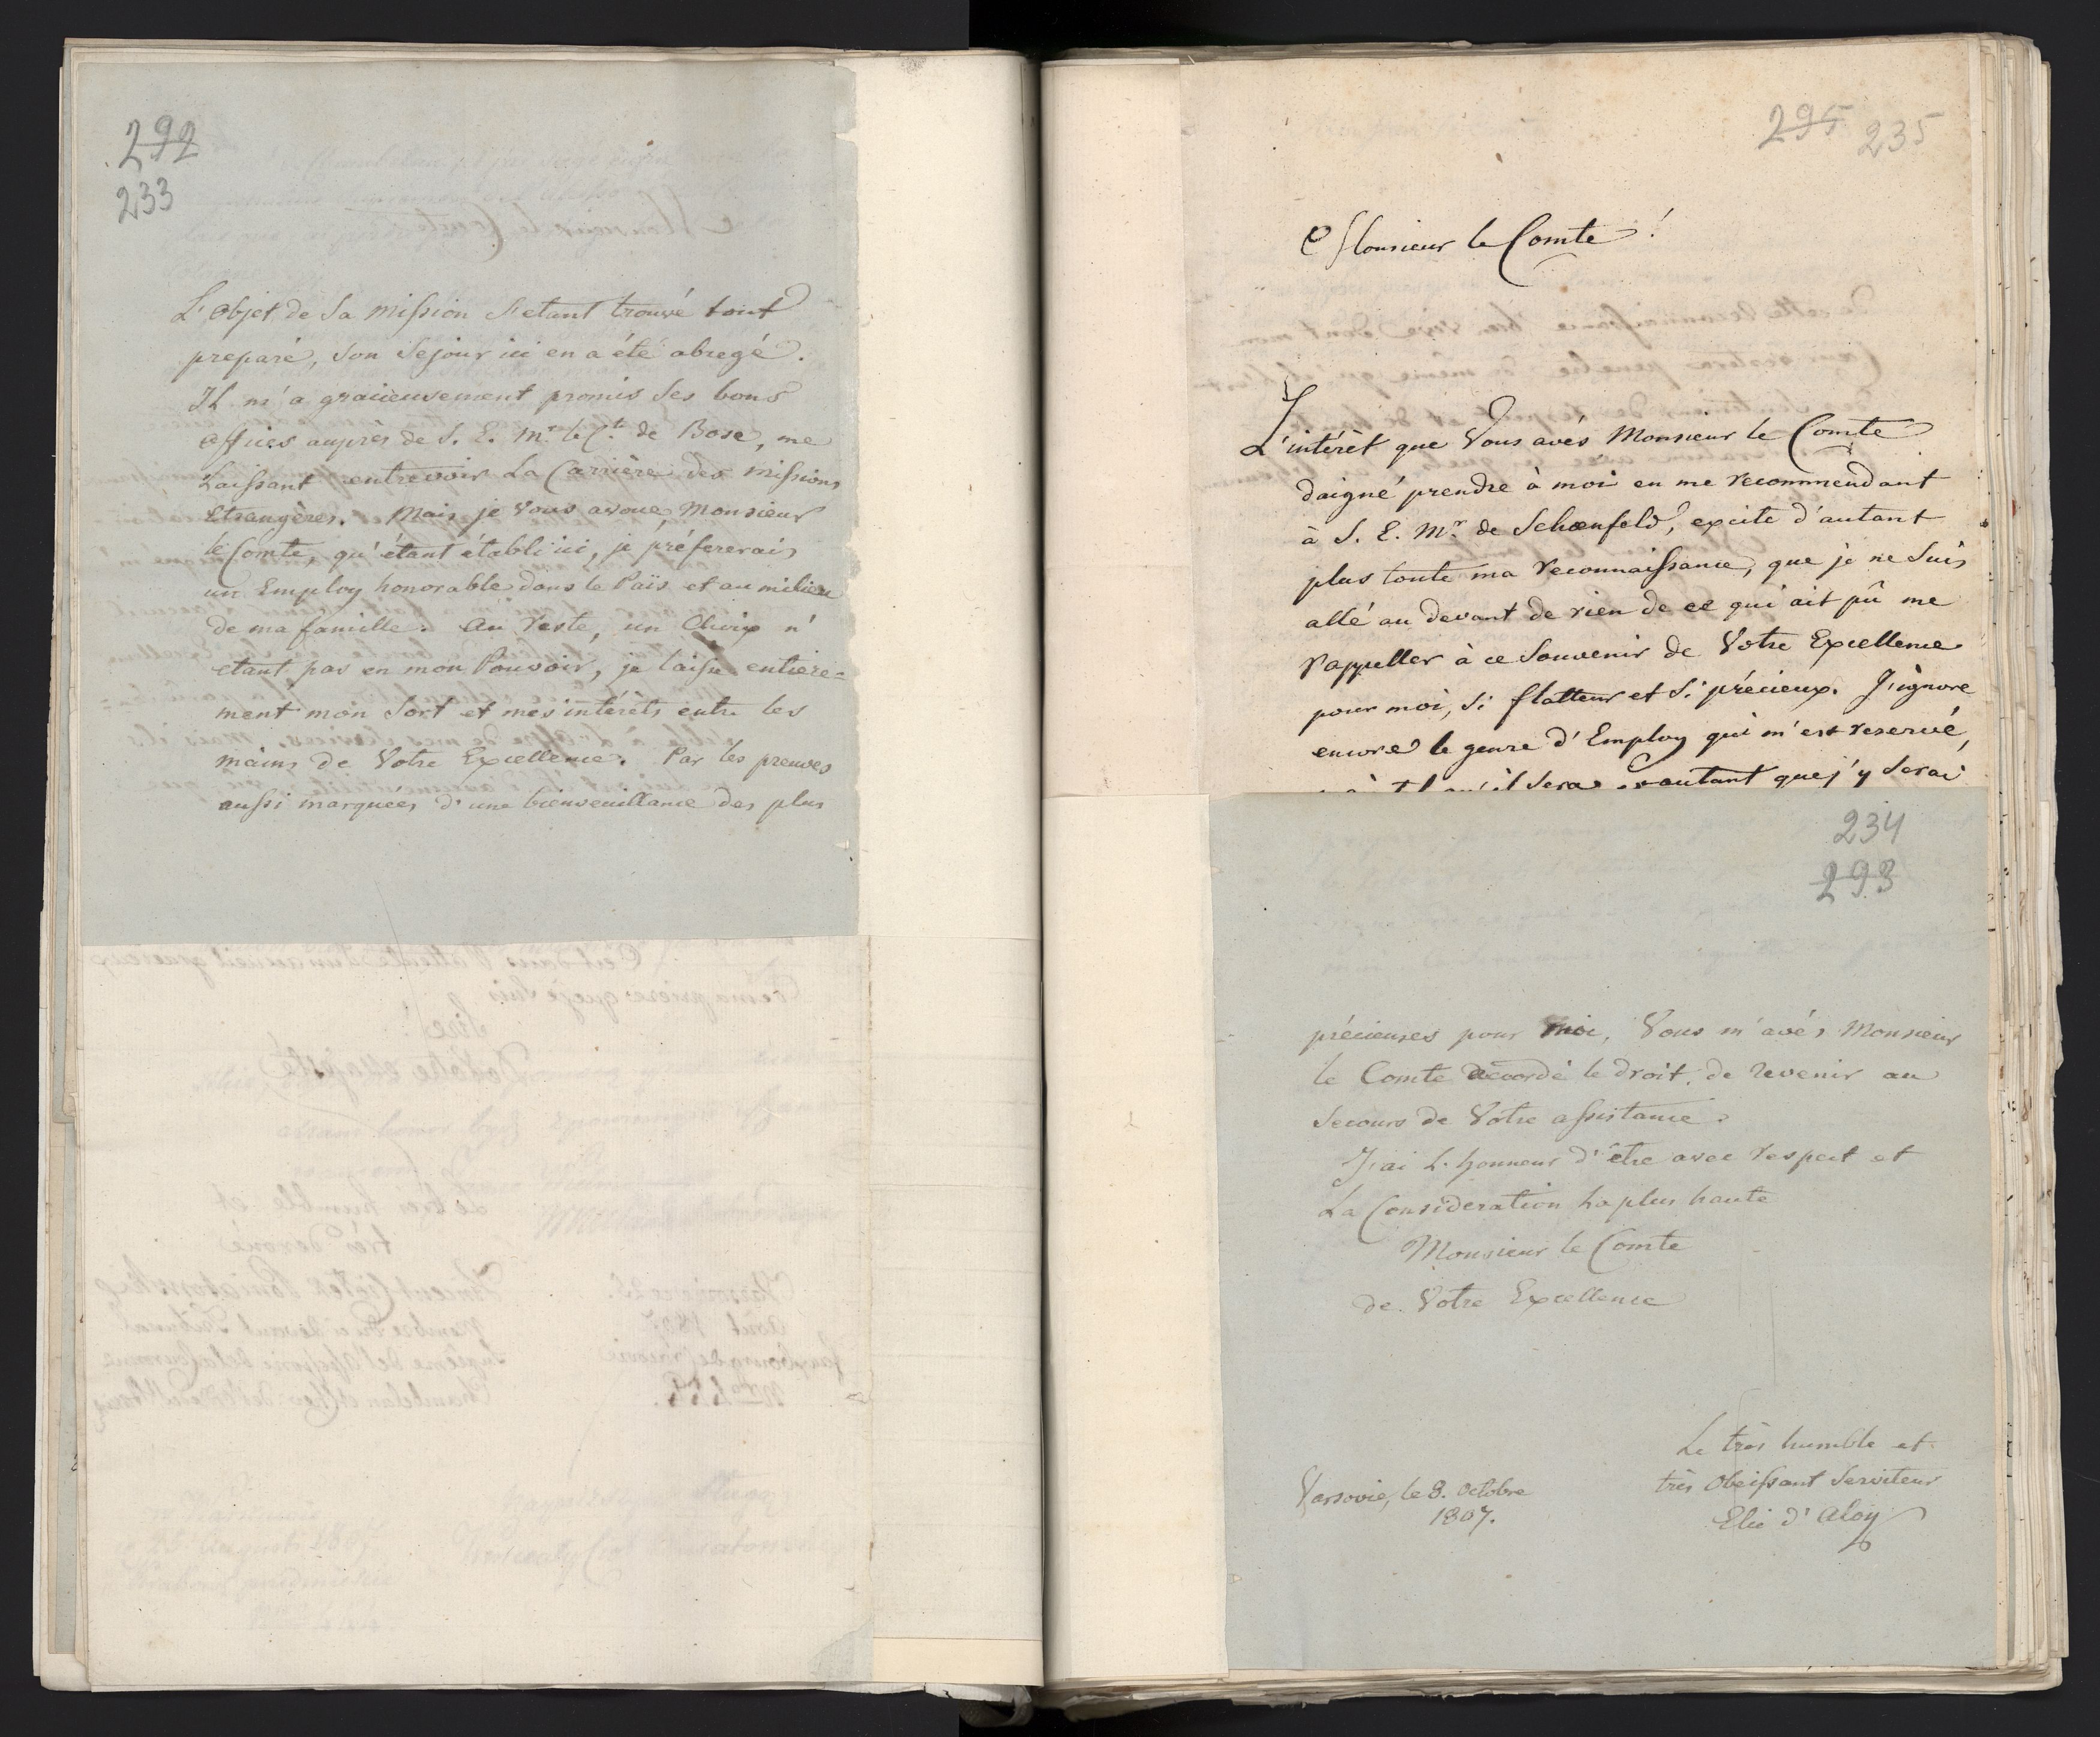 292
233
L'Objet de Sa Mission S'etant trouvé tout
preparé, Son Sejour ici en a été abregé.
Il m'a gracieusement promis Ses bons
offices auprès de S. E. Mr. le Ct. de Bose, me
Laissant entrevoir La Carrière des missions
Etrangères. Mais je Vous avoue, Monsieur
le Comte, qu'étant établi ici, je préfererais
un Employ honorable dans le Païs et au milieu
de ma famille. Au reste, un Choix n'
etant pas en mon Pouvoir, je laisse entiere=
ment mon Sort et mes intérêts entre les
mains de Votre Excellence. Par les preuves
aussi marquées d'une bienveuillance des plus
295 235
Monsieur le Comte!
L'intérêt que Vous avés Monsieur le Comte
daigné prendre à moi en me recommendant
à S. E. Mr. de Schœnfeld, excite d'autant
plus toute ma reconnaissance, que je ne Suis
allé au devant de rien de ce qui ait pû me
rappeller à ce Souvenir de Votre Excellence
pour moi, Si flatteur et Si précieux. J'ignore
encore le genre d'Employ qui m'est reservé,
qu'il Sera autant que j'y Serai
234
293
précieuses pour moi, Vous m'avés Monsieur
le Comte accordé le droit, de revenir au
Secours de Votre assistance.
J'ai L'honneur d'être avec respect et
La Consideration La plus haute
Monsieur le Comte
de Votre Excellence
Le très humble et
très Obeissant Serviteur
Varsovie, le 8. Octobre
1807.
Elie d'Aloy